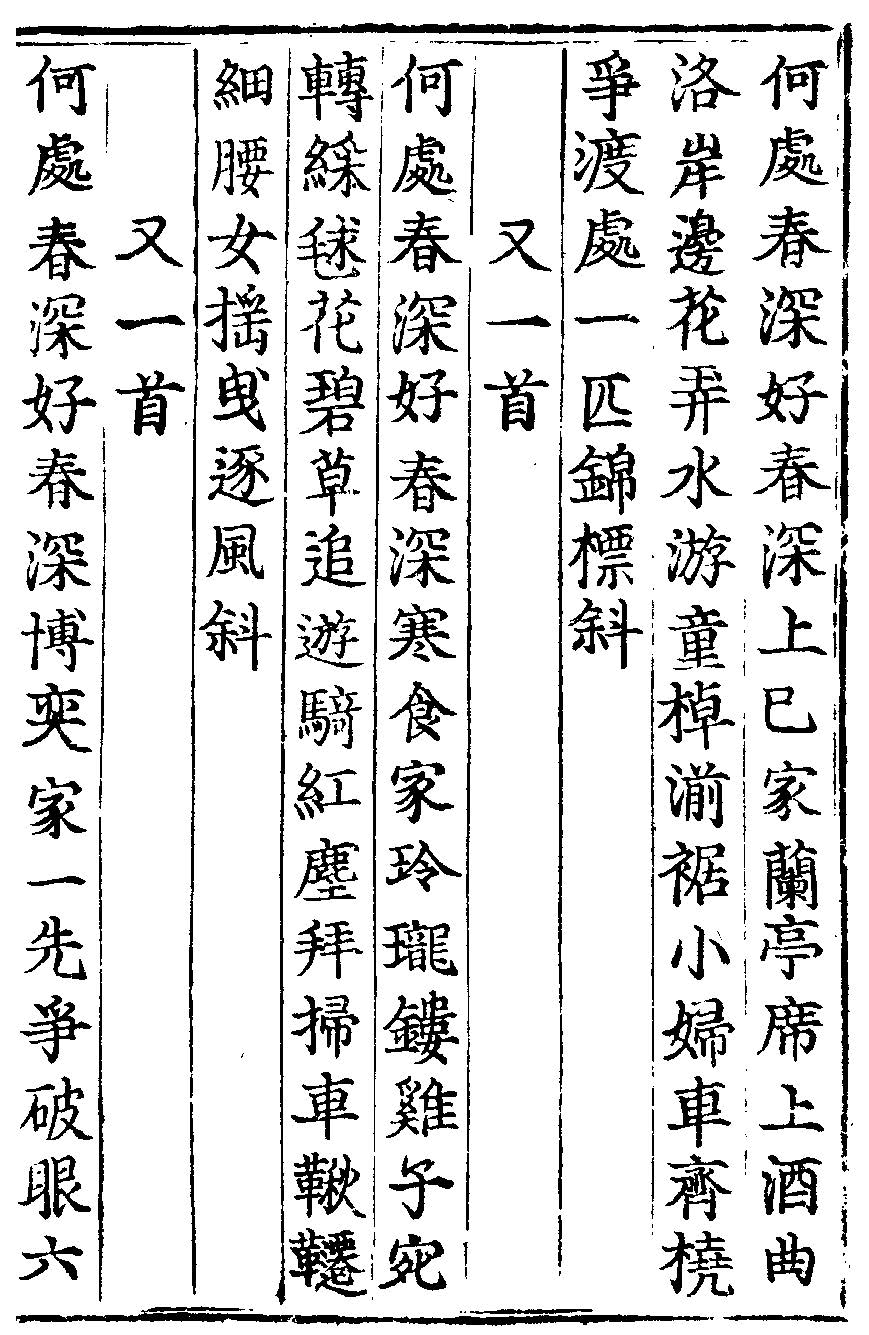 何處春深好春深上巳家蘭亭席上酒曲
洛岸邊花弄水游童棹湔裾小婦車齊橈
爭渡處一匹錦標斜
又一首
何處春深好春深寒食家玲瓏鏤雞子宛
轉綵毬花碧草追遊騎紅塵拜掃車鞦韆
細腰女搖曳逐風斜
又一首
何處春深好春深博奕家一先爭破眼六